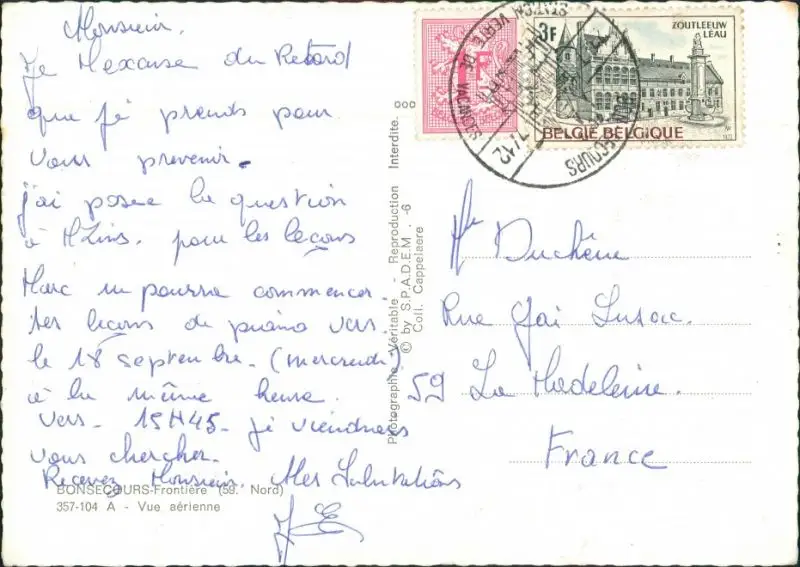 Monsieur.
Je M'excuse du Retard
que j'ai prends pour
vous prevenir.
j'ai posée la question
à M. Lins. pour les leçons
Marc un pourra commencer
ses leçons de piano vers.
le 18 septembre. (mercredi)
à la même heure.
vers. 15H45. je viendrais
vous chercher.
Recevez Monsieur. Mes Salutations
BONSECOURS-Frontière (59. Nord)
357-104 A - Vue aérienne
Photographie Véritable - Reproduction Interdite.
© by S.P.A.D.E.M. - 6
Coll. Cappelaere
000
1F
3F
ZOUTLEEUW
LÉAU
BELGIË BELGIQUE
STATION VERTE DE VACANCES
BONSECOURS
Duchêne
Rue Gai Lusac.
59 La Madeleine.
France